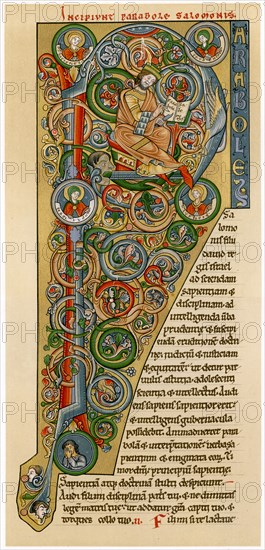 Incipiunt parabole salomonis.
PARABOLES
Sa
lomo
nis filii
david re
gis israel
ad sciendam
sapientiam &
disciplinam. ad
intelligenda
prudentię & suscipi
endā eruditionē doct
& iudiciū &
& equitatē. ut detur par
vulis astutia. adolescenti
scientia & intellectus. Audi
ens sapiens sapientior erit.
& intelligens gubernacula
possidebit. Animadvertet para
bolā & interpretationē. verba sa
pientium & enigmata eorū. Ti
mor dn̄i principiū sapientię.
Sapientiā atq; doctrinā stulti despiciunt.
Audi fili mi disciplinā patris tui. & ne dimittas
legē matris tuę. ut addatur gr̄a capiti tuo. &
torques collo tuo. II. Fili mi si te lactave